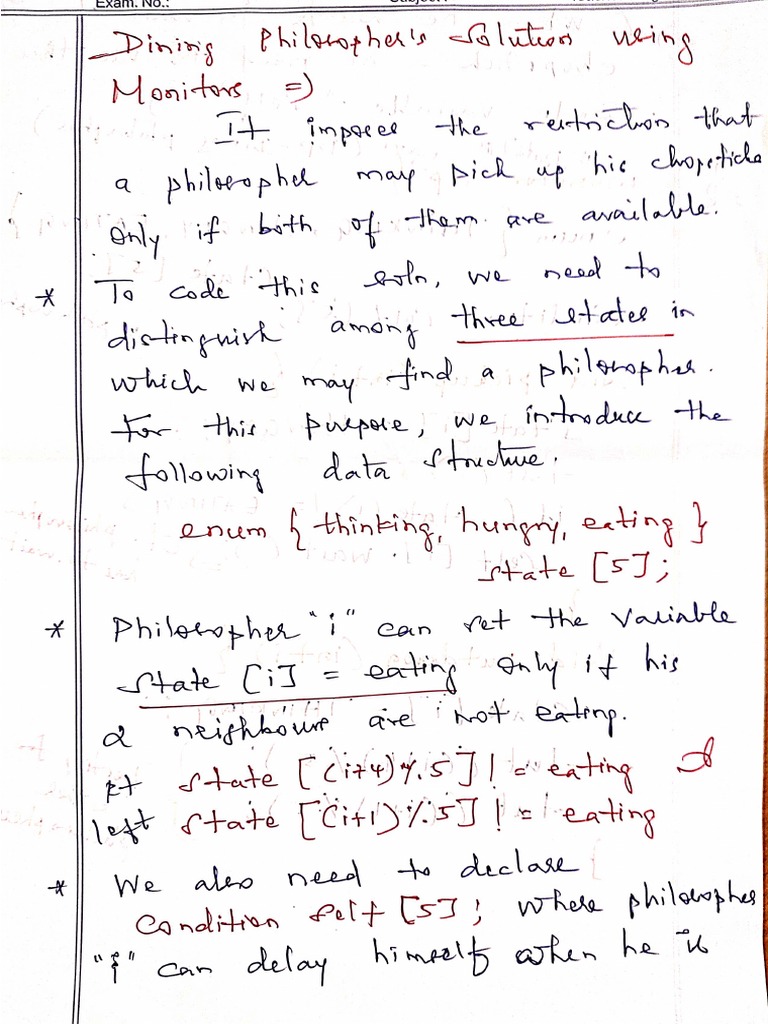 Exam. No.:
Dining Philosopher's Solution using
Monitors =>
It imposes the restriction that
a philosopher may pick up his chopsticks
only if both of them are available.
* To code this soln, we need to
distinguish among three states in
which we may find a philosopher.
For this purpose, we introduce the
following data structure.
enum { thinking, hungry, eating }
state [5];
* Philosopher "i" can set the variable
state [i] = eating only if his
2 neighbours are not eating.
rt state [(i+4)%.5] != eating &
left state [(i+1)%.5] != eating
* We also need to declare
Condition self [5]; where philosopher
"i" can delay himself when he is